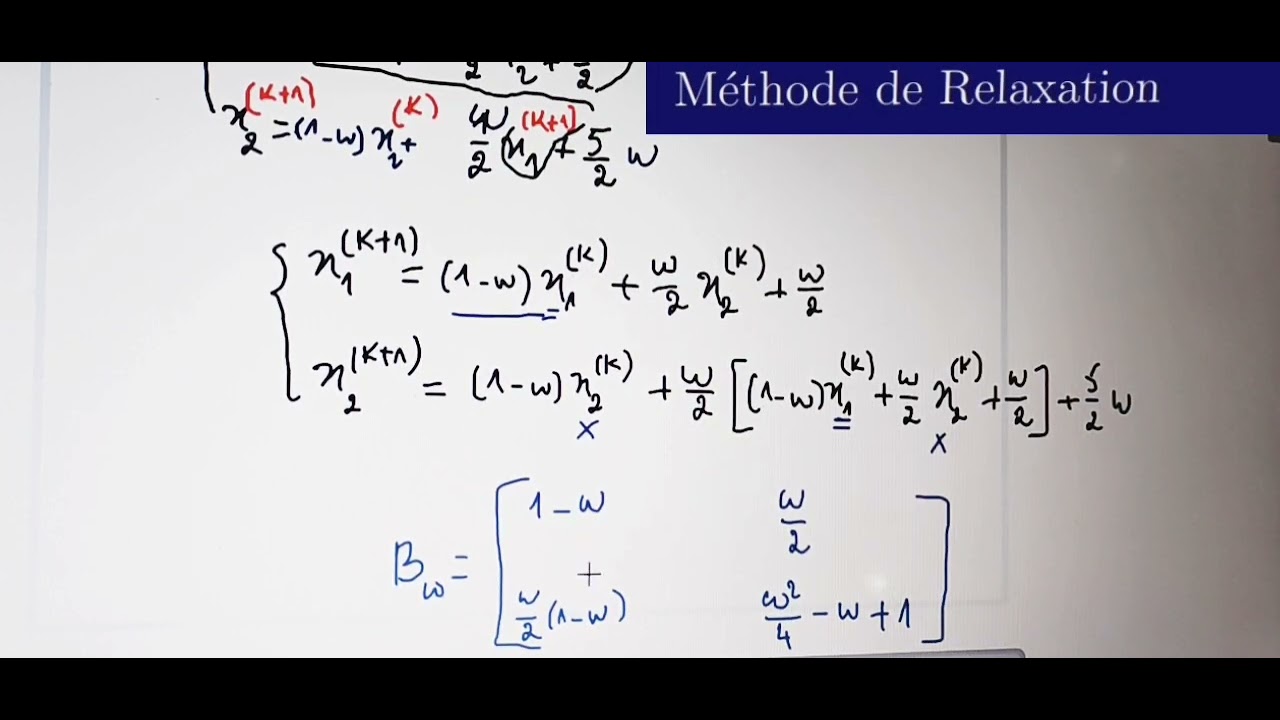 Méthode de Relaxation
x_2^{(K+1)} = (1-w) x_2^{(K)} + \frac{w}{2} x_1^{(K+1)} + \frac{5}{2} w
x_1^{(K+1)} = (1-w) x_1^{(K)} + \frac{w}{2} x_2^{(K)} + \frac{w}{2}
x_2^{(K+1)} = (1-w) x_2^{(K)} + \frac{w}{2} [(1-w) x_1^{(K)} + \frac{w}{2} x_2^{(K)} + \frac{w}{2}] + \frac{5}{2} w
x x
1-w \frac{w}{2}
B_w =
\frac{w}{2}(1-w) \frac{w^2}{4} - w + 1